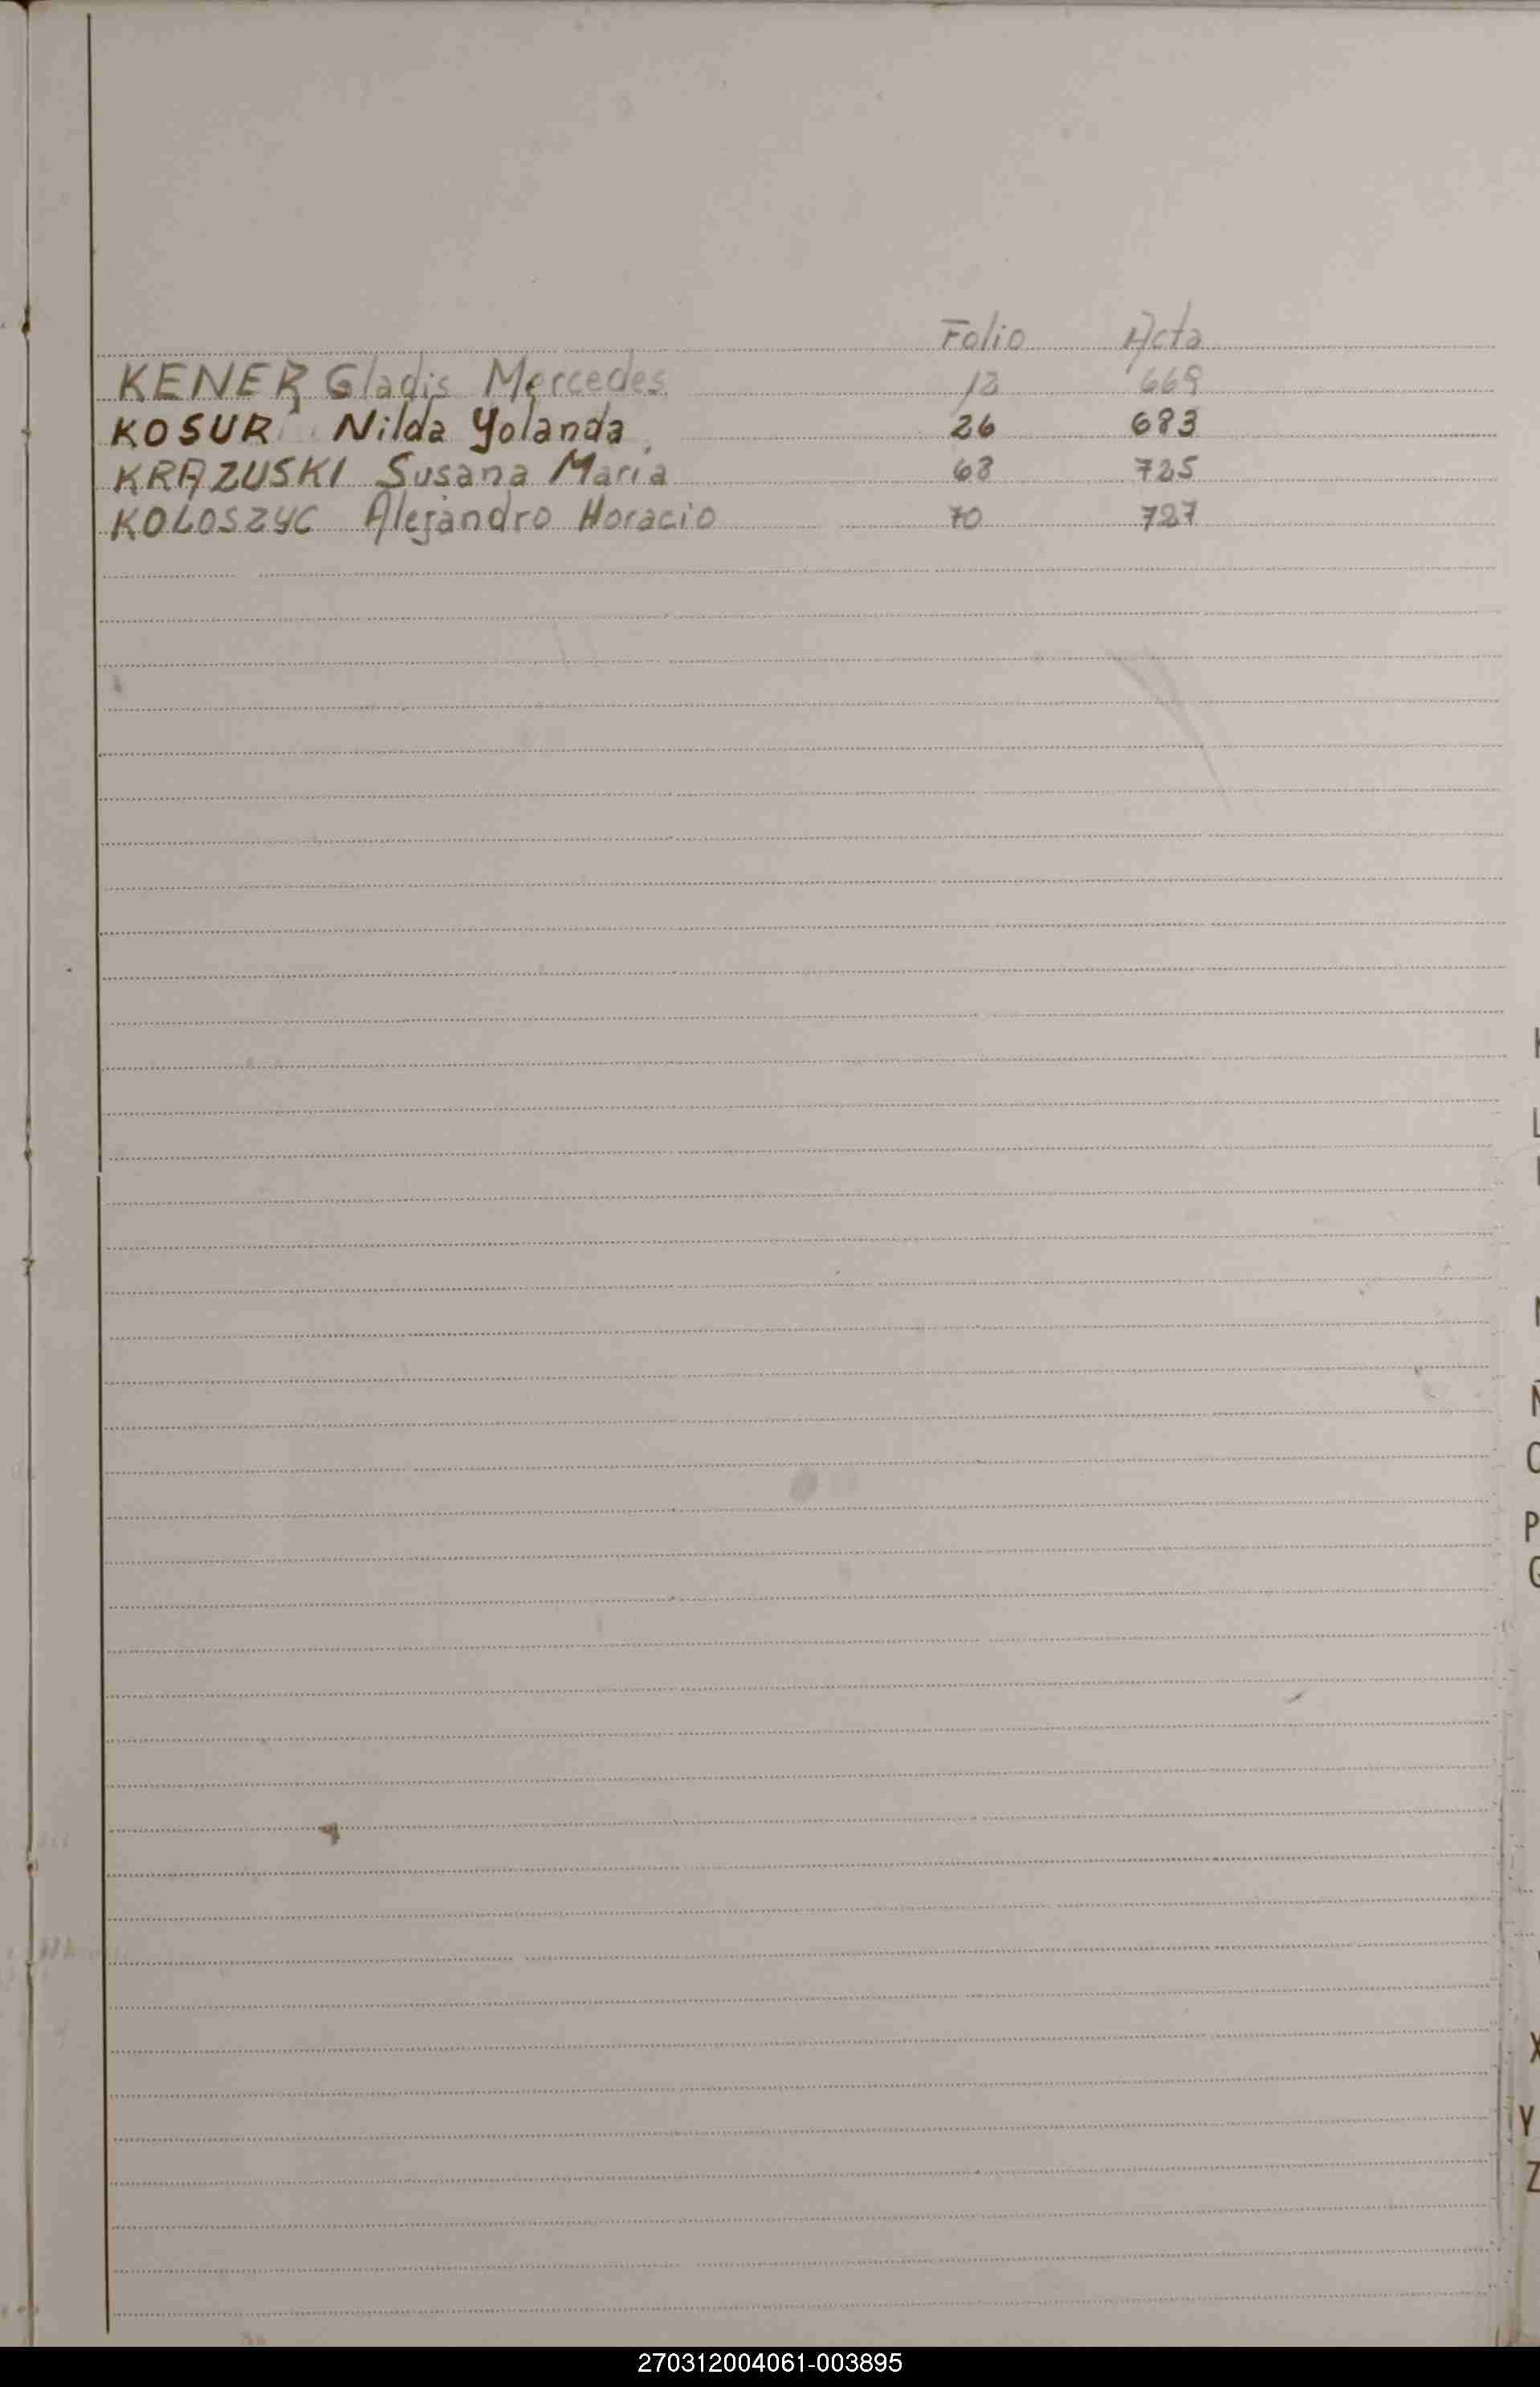 Folio Acta
KENER Gladis Mercedes 12 669
KOSUR Nilda Yolanda 26 683
KRAZUSKI Susana Maria 68 725
KOLOSZYC Alejandro Horacio 70 727
L
Ñ
P
X
Y
Z
270312004061-003895